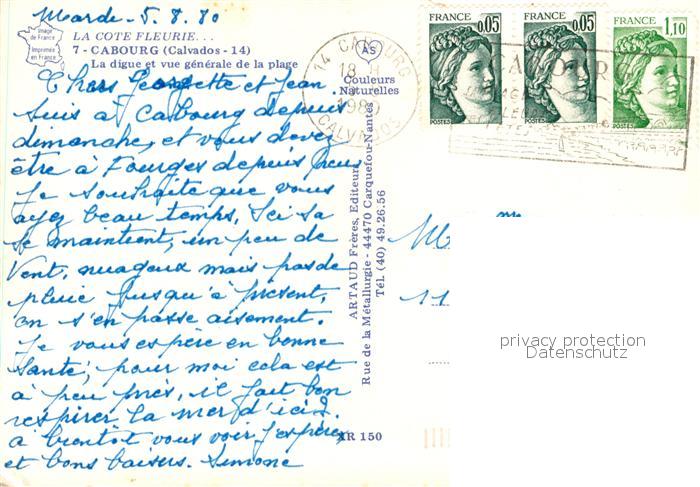 Marde - 5.8.80
Image de France
Imprimée en France
LA COTE FLEURIE...
7 - CABOURG (Calvados - 14)
La digue et vue générale de la plage
AS
Couleurs
Naturelles
Chers Georgette et Jean
Suis à Cabourg depuis
dimanche, et vous devez
être à Fourges depuis peu
Je souhaite que vous
ayez beau temps, Ici sa
se maintient, un peu de
Vent, nuageux mais pas de
pluie jusqu'à présent,
on s'en passe aisement.
Je vous espère en bonne
Santé, pour moi cela est
à peu près, il fait bon
respirer la mer d'ici
à bientôt vous voir j'espère,
et bons baisers. Simone
ARTAUD Frères, Editeurs
Rue de la Métallurgie - 44470 Carquefou-Nantes
Tél. (40) 49.26.56
AR 150
14 CABOURG
18 H
1980
CALVADOS
FRANCE 0,05
POSTES
FRANCE 0,05
POSTES
FRANCE 1,10
POSTES
privacy protection
Datenschutz